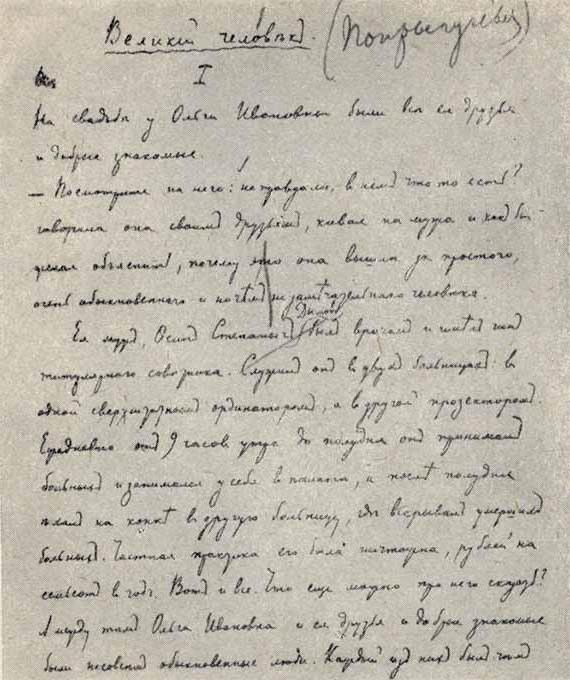 Великій человѣкъ. (Попрыгунья)
I
На свадьбѣ у Ольги Ивановны были всѣ ея друзья
и добрые знакомые.
— Посмотрите на него: не правда ли, въ немъ что-то есть?
говорила она своимъ друзьямъ, кивая на мужа и какъ бы
желая объяснить, почему это она вышла за простого,
очень обыкновеннаго и ничѣмъ не замѣчательнаго человѣка.
Ея мужъ, Осипъ Степанычъ Дымовъ, былъ врачомъ и имѣлъ чинъ
титулярнаго совѣтника. Служилъ онъ въ двухъ больницахъ: въ
одной сверхштатнымъ ординаторомъ, а въ другой прозекторомъ.
Ежедневно отъ 9 часовъ утра до полудня онъ принималъ
больныхъ и занимался у себя въ палатѣ, а послѣ полудня
ѣхалъ на конкѣ въ другую больницу, гдѣ вскрывалъ умершихъ
больныхъ. Частная практика его была ничтожна, рублей на
семьсотъ въ годъ. Вотъ и все. Что еще можно про него сказать?
А между тѣмъ Ольга Ивановна и ея друзья и добрые знакомые
были не совсѣмъ обыкновенные люди. Каждый изъ нихъ былъ чѣмъ